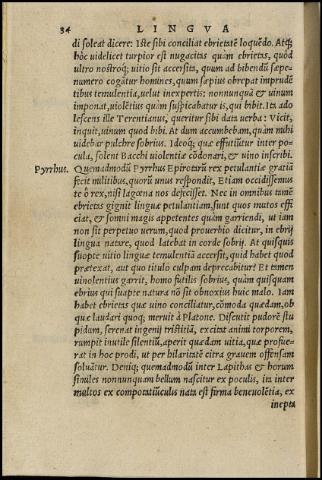 34 LINGVA
di soleat dicere: Iste sibi conciliat ebrietatẽ loquẽdo. Atq;
hôc uidelicet turpior est nugacitas quàm ebrietas, quòd
ultro nostroq; uitio sit accersita, quum ad bibendũ sæpe-
numero cogãtur homines, quum sæpius obrepat imprudẽ
tibus temulentia, uelut inexpertis: nonnunquã & uinum
imponat, uiolẽtius quàm suspicabatur is, qui bibit. Ita ado
lescens ille Terentianus, queritur sibi data uerba: Vicit,
inquit, uinum quod bibi. At dum accumbebam, quàm mihi
uidebar pulchre sobrius. Ideoq; quæ effutiũtur inter po-
cula, solent Bacchi uiolentia cõdonari, & uino inscribi.
Pyrrhus. Quemadmodũ Pyrrhus Epirotarũ rex petulantiæ gratiã
fecit militibus, quorũ unus respondit, Etiam occidissemus
te ô rex, nisi lagena nos defecisset. Nec in omnibus tamẽ
ebrietas gignit linguæ petulantiam, sunt quos mutos effi
ciat, & somni magis appetentes quàm garriendi, ut iam
non sit perpetuo uerum, quod prouerbio dicitur, in ebrij
lingua natare, quod latebat in corde sobrij. At quisquis
suopte uitio linguæ temulentiã accersit, quid habet quod
prætexat, aut quo titulo culpam deprecabitur? Et tamen
uinolentius garrit, homo futilis sobrius, quàm quisquam
ebrius qui suapte natura nõ sit obnoxius huic malo. Iam
habet ebrietas quæ uino conciliatur, cõmoda quædam, ob
quæ laudari quoq; meruit à Platone. Discutit pudorẽ stu
pidum, serenat ingenij tristitiã, excitat animi torporem,
rumpit inutile silentiũ, aperit quædam uitia, quæ profue-
rat in hoc prodi, ut per hilaritatẽ citra grauem offensam
soluãtur. Deniq; quemadmodũ inter Lapithas & horum
similes nonnunquam bellum nascitur ex poculis, ita inter
multos ex compotatiũculis nata est firma beneuolẽtia, ex
inepta